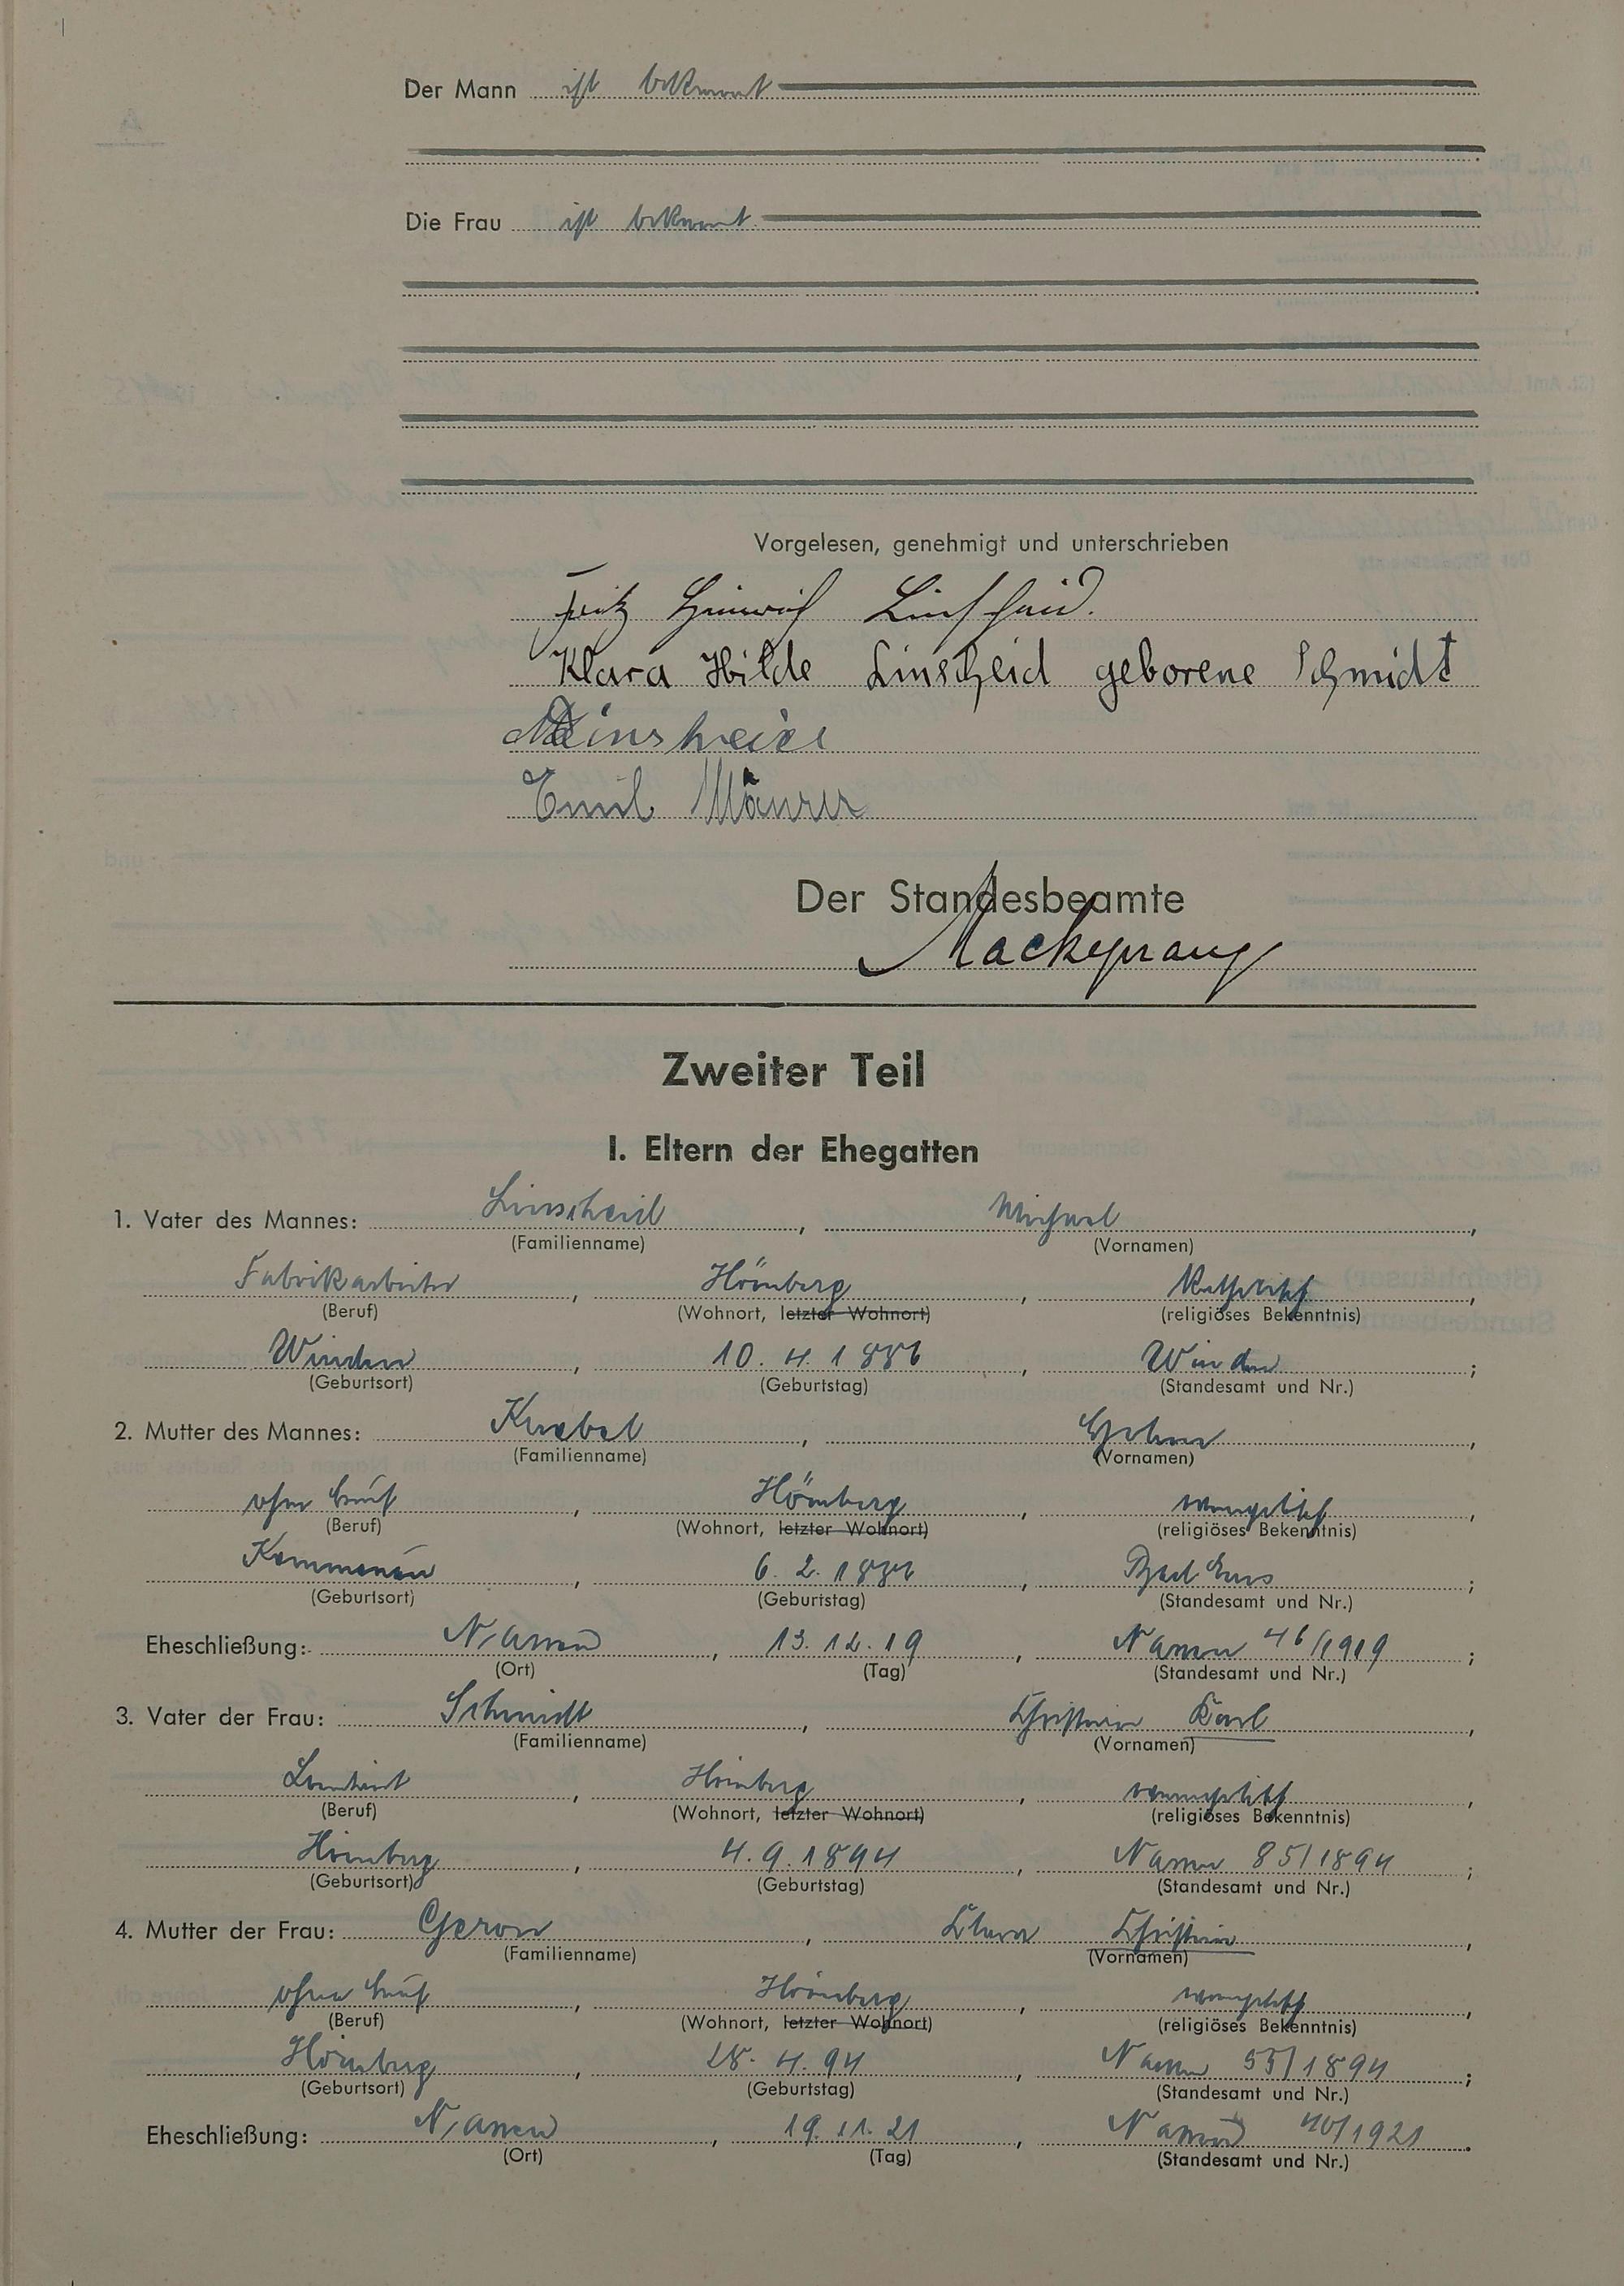 Der Mann ist bekannt
Die Frau ist bekannt
Vorgelesen, genehmigt und unterschrieben
Fritz Heinrich Linscheid.
Klara Hilde Linscheid geborene Schmidt
Emil Maurer
Der Standesbeamte
Mackeprang
Zweiter Teil
I. Eltern der Ehegatten
1. Vater des Mannes: Linscheid, Michael,
(Familienname) (Vornamen)
Fabrikarbeiter, Hömberg, Katholisch,
(Beruf) (Wohnort, letzter Wohnort) (religiöses Bekenntnis)
Winden, 10. 4. 1886, Winden;
(Geburtsort) (Geburtstag) (Standesamt und Nr.)
2. Mutter des Mannes: Knebel,
(Familienname) (Vornamen)
ohne Beruf, Hömberg, evangelisch,
(Beruf) (Wohnort, letzter Wohnort) (religiöses Bekenntnis)
Kemmenau, 6. 2., Bad Ems;
(Geburtsort) (Geburtstag) (Standesamt und Nr.)
Eheschließung: Nassau, 13. 12. 19, Nassau 46/1919;
(Ort) (Tag) (Standesamt und Nr.)
3. Vater der Frau: Schmidt, Christian Karl,
(Familienname) (Vornamen)
Landwirt, Hömberg, evangelisch,
(Beruf) (Wohnort, letzter Wohnort) (religiöses Bekenntnis)
Hömberg, 4. 9. 1894, Nassau 85/1894;
(Geburtsort) (Geburtstag) (Standesamt und Nr.)
4. Mutter der Frau: Christine,
(Familienname) (Vornamen)
ohne Beruf, Hömberg, evangelisch,
(Beruf) (Wohnort, letzter Wohnort) (religiöses Bekenntnis)
Hömberg, 28. 4. 94, Nassau 55/1894;
(Geburtsort) (Geburtstag) (Standesamt und Nr.)
Eheschließung: Nassau, 19. 11. 21, Nassau 40/1921.
(Ort) (Tag) (Standesamt und Nr.)